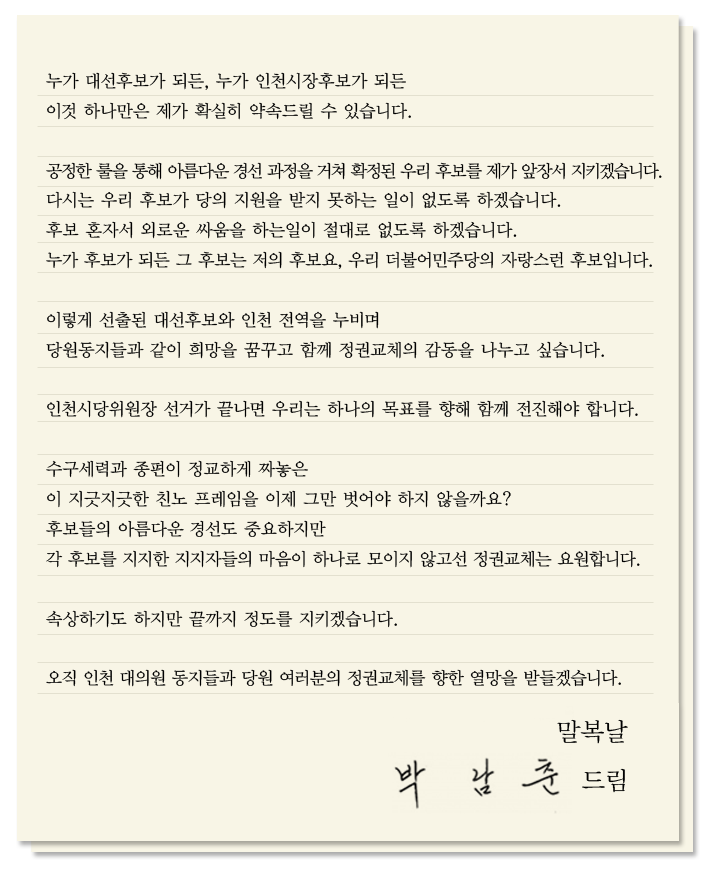 누가 대선후보가 되든, 누가 인천시장후보가 되든
이것 하나만은 제가 확실히 약속드릴 수 있습니다.
공정한 룰을 통해 아름다운 경선 과정을 거쳐 확정된 우리 후보를 제가 앞장서 지키겠습니다.
다시는 우리 후보가 당의 지원을 받지 못하는 일이 없도록 하겠습니다.
후보 혼자서 외로운 싸움을 하는일이 절대로 없도록 하겠습니다.
누가 후보가 되든 그 후보는 저의 후보요, 우리 더불어민주당의 자랑스런 후보입니다.
이렇게 선출된 대선후보와 인천 전역을 누비며
당원동지들과 같이 희망을 꿈꾸고 함께 정권교체의 감동을 나누고 싶습니다.
인천시당위원장 선거가 끝나면 우리는 하나의 목표를 향해 함께 전진해야 합니다.
수구세력과 종편이 정교하게 짜놓은
이 지긋지긋한 친노 프레임을 이제 그만 벗어야 하지 않을까요?
후보들의 아름다운 경선도 중요하지만
각 후보를 지지한 지지자들의 마음이 하나로 모이지 않고선 정권교체는 요원합니다.
속상하기도 하지만 끝까지 정도를 지키겠습니다.
오직 인천 대의원 동지들과 당원 여러분의 정권교체를 향한 열망을 받들겠습니다.
말복날
박 남 춘 드림